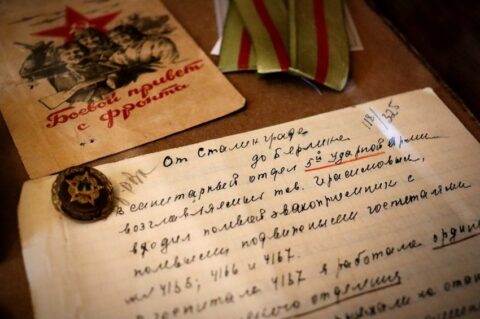 Боевой привет
с фронта
118/325
От Сталинграда
до Берлина
В санитарный отдел 5й ударной армии
возглавляемый тов. Герасимовым,
входил полевой эвакоприемник с
полевыми подвижными госпиталями
4166 и 4167.
госпитале 4167 я работала
отделения